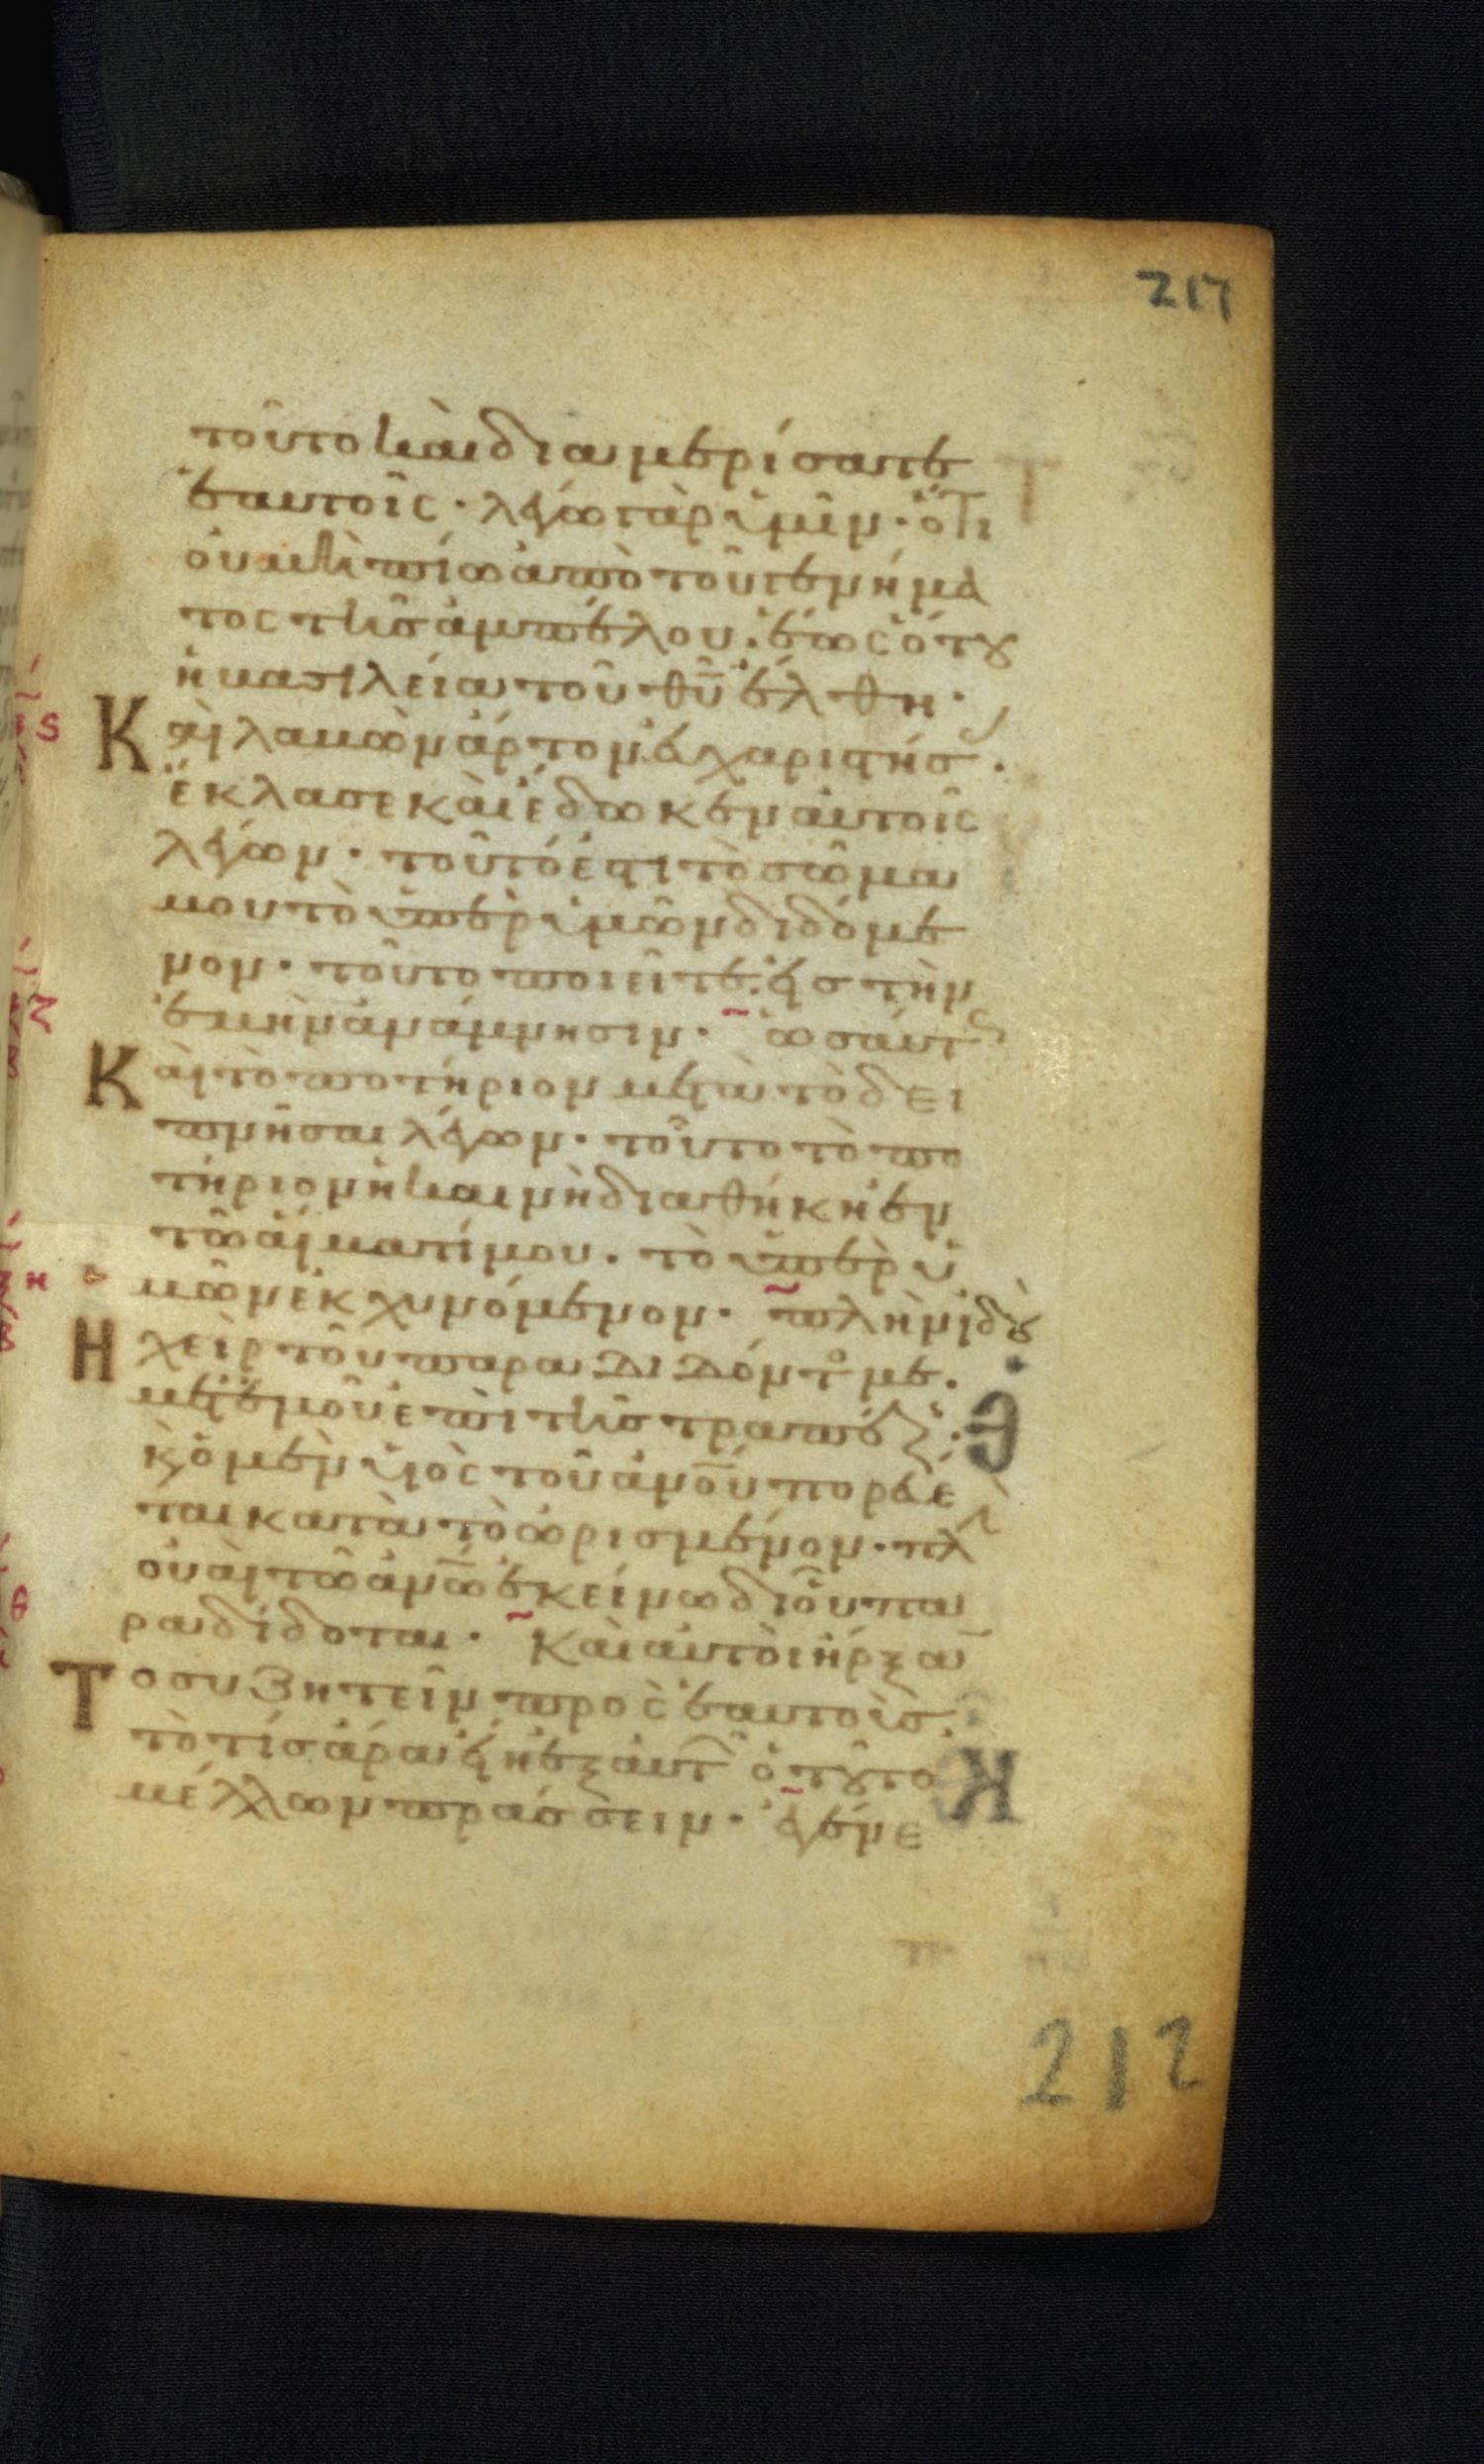 217
τοῦτο καὶ διαμερίσατε
ἑαυτοῖς· λέγω γὰρ ὑμῖν· ὅτι
οὐ μὴ πίω ἀπὸ τοῦ γενήμα
τος τῆς ἀμπέλου· ἕως ὅτου
ἡ βασιλεία τοῦ θῡ ἔλθη·
Καὶ λαβὼν ἄρτον εὐχαριστήσ·
ἔκλασε καὶ ἔδωκεν αὐτοῖς
λέγων· τοῦτό ἐστι τὸ σῶμα
μου τὸ ὑπὲρ ὑμῶν διδόμε
νον· τοῦτο ποιεῖτε εἰς τὴν
ἐμὴν ἀνάμνησιν· ὡσαύτως
Καὶ τὸ ποτήριον μετὰ τὸ δει
πνῆσαι λέγων· τοῦτο τὸ πο
τήριον ἡ καινὴ διαθήκη ἐν
τῶ αἵματί μου· τὸ ὑπὲρ ὑ
μῶν ἐκχυνόμενον· πλὴν ἰδοὺ
Η χεὶρ τοῦ παραδιδόντος με·
μετ' ἐμοῦ ἐπὶ τῆς τραπέζ·
κ ὁ μὲν υἱὸς τοῦ ἀνοῦ πορεύε
ται κατὰ τὸ ὡρισμένον· πλ
οὐαὶ τῶ ἀνω ἐκείνω δι οὗ πα
ραδίδοται· Καὶ αὐτοὶ ἤρξαν
Το συζητεῖν πρὸς ἑαυτοὺς·
τὸ τίς ἄρα εἴη ἐξ αὐτ ὁ τοῦτο
μέλλων πράσσειν· ἐγένε
212